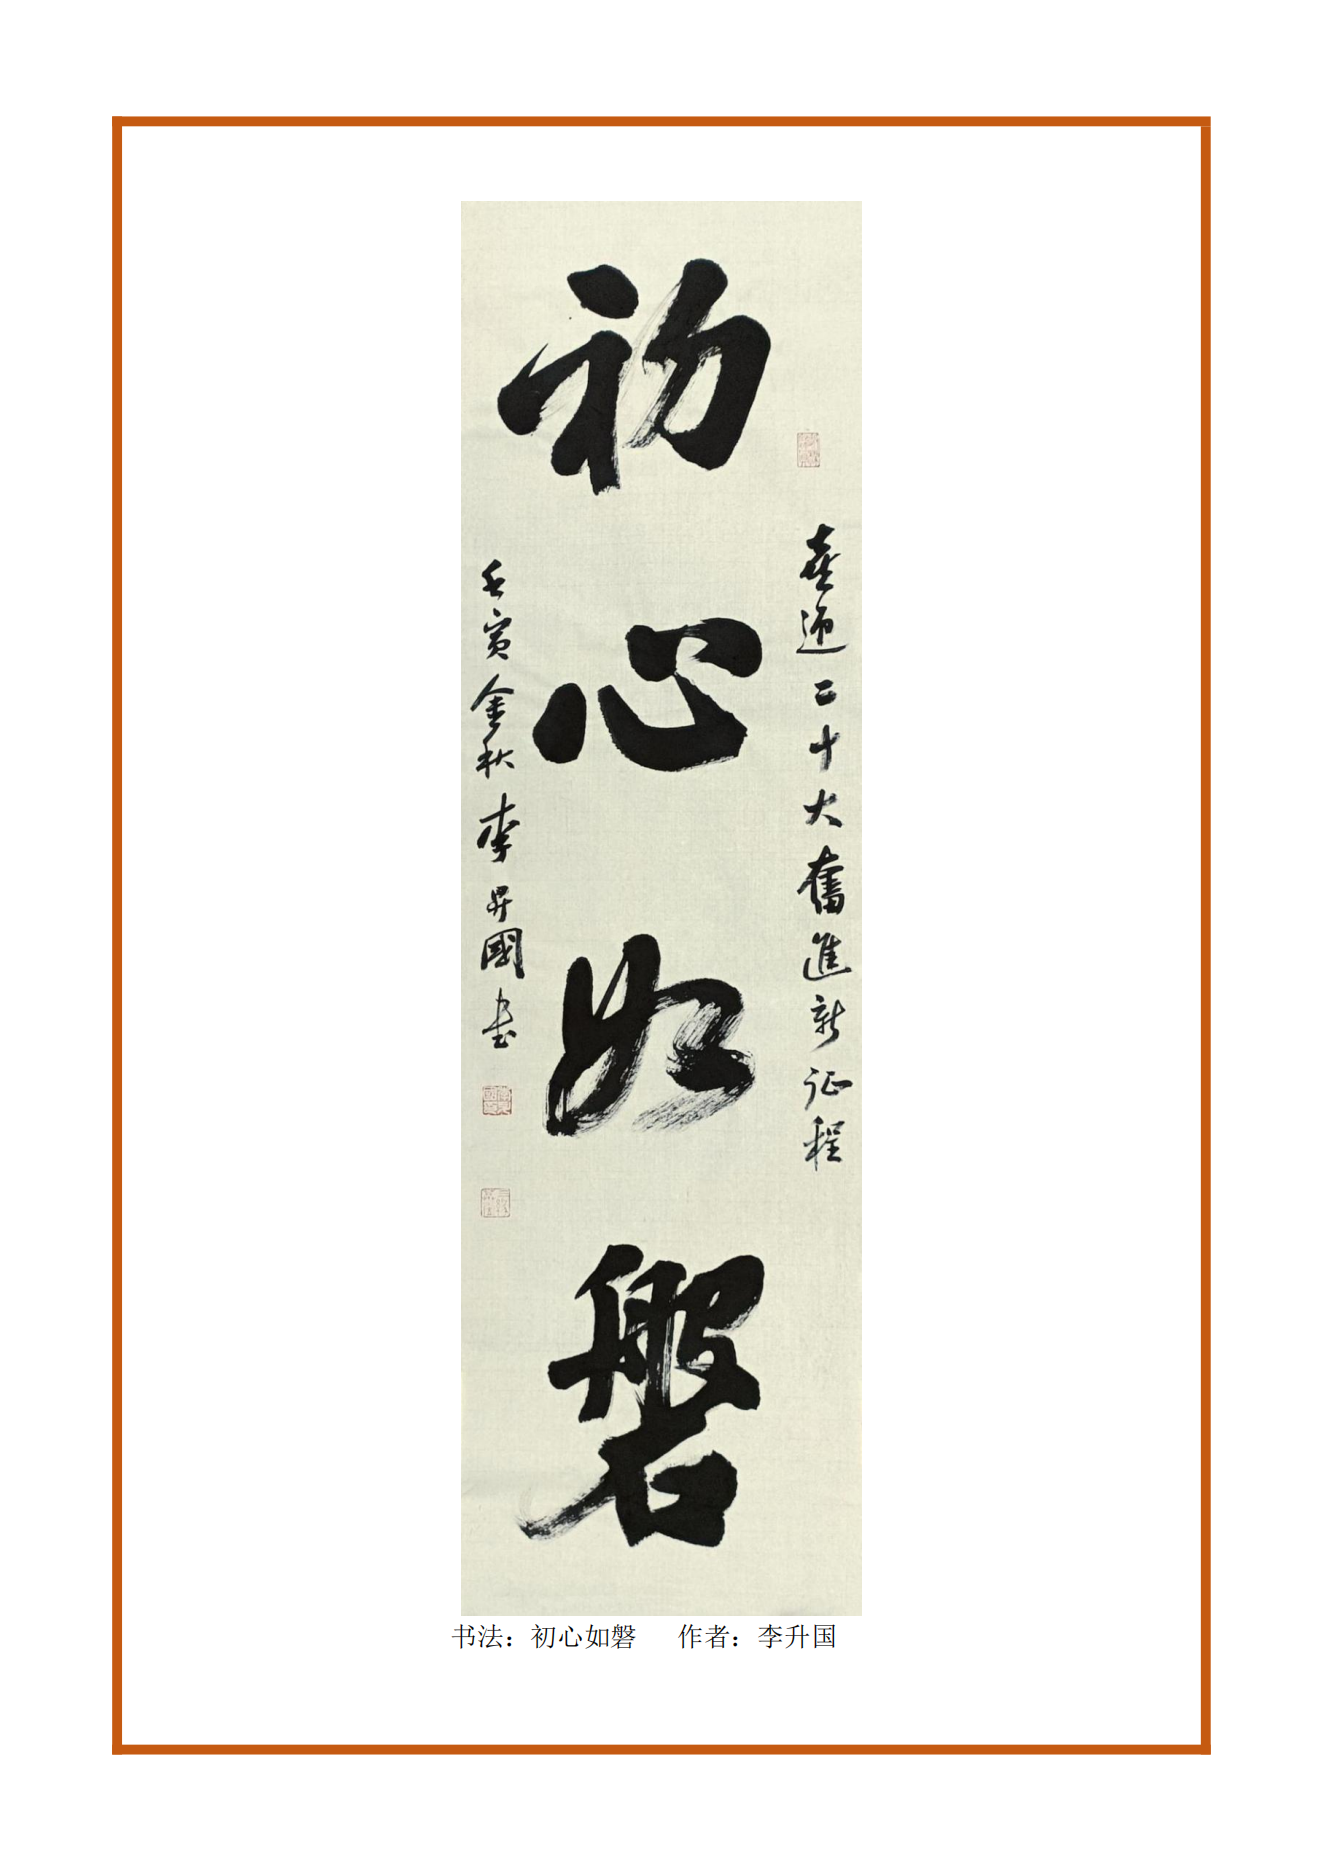 喜迎二十大奮進新征程
初心如磐
壬寅金秋李昇國书
书法：初心如磐 作者：李升国